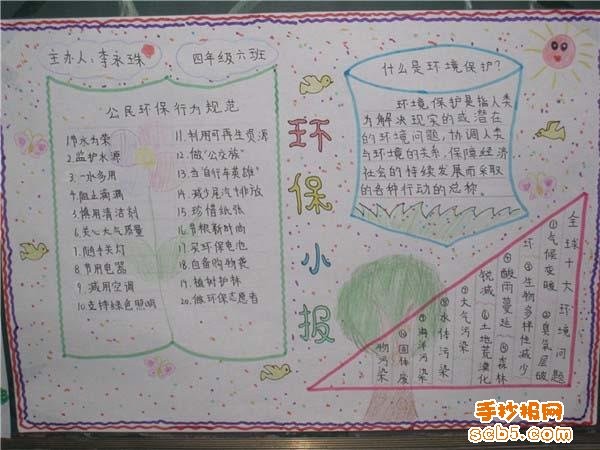 主办人：李永珠
四年级六班
公民环保行为规范
1.节水为荣
2.监护水源
3.一水多用
4.阻止滴漏
5.慎用清洁剂
6.关心大气质量
7.随手关灯
8.节用电器
9.减用空调
10.支持绿色照明
11.利用可再生资源
12.做“公交族”
13.当“自行车英雄”
14.减少尾汽排放
15.珍惜纸张
16.节粮新时尚
17.买环保电池
18.自备购物袋
19.植树护林
20.做环保志愿者
环保小报
什么是环境保护？
环境保护是指人类
为解决现实的或潜在
的环境问题，协调人类
与环境的关系，保障经济
社会的持续发展而采取
的各种行动的总称。
全球十大环境问题
①气候变暖 ②臭氧层破
环 ③生物多样性减少
④酸雨蔓延 ⑤森林
锐减 ⑥土地荒漠化
⑦大气污染
⑧水体污染
⑨海洋污染
⑩固体废
物污染
手抄报网
scb5.com